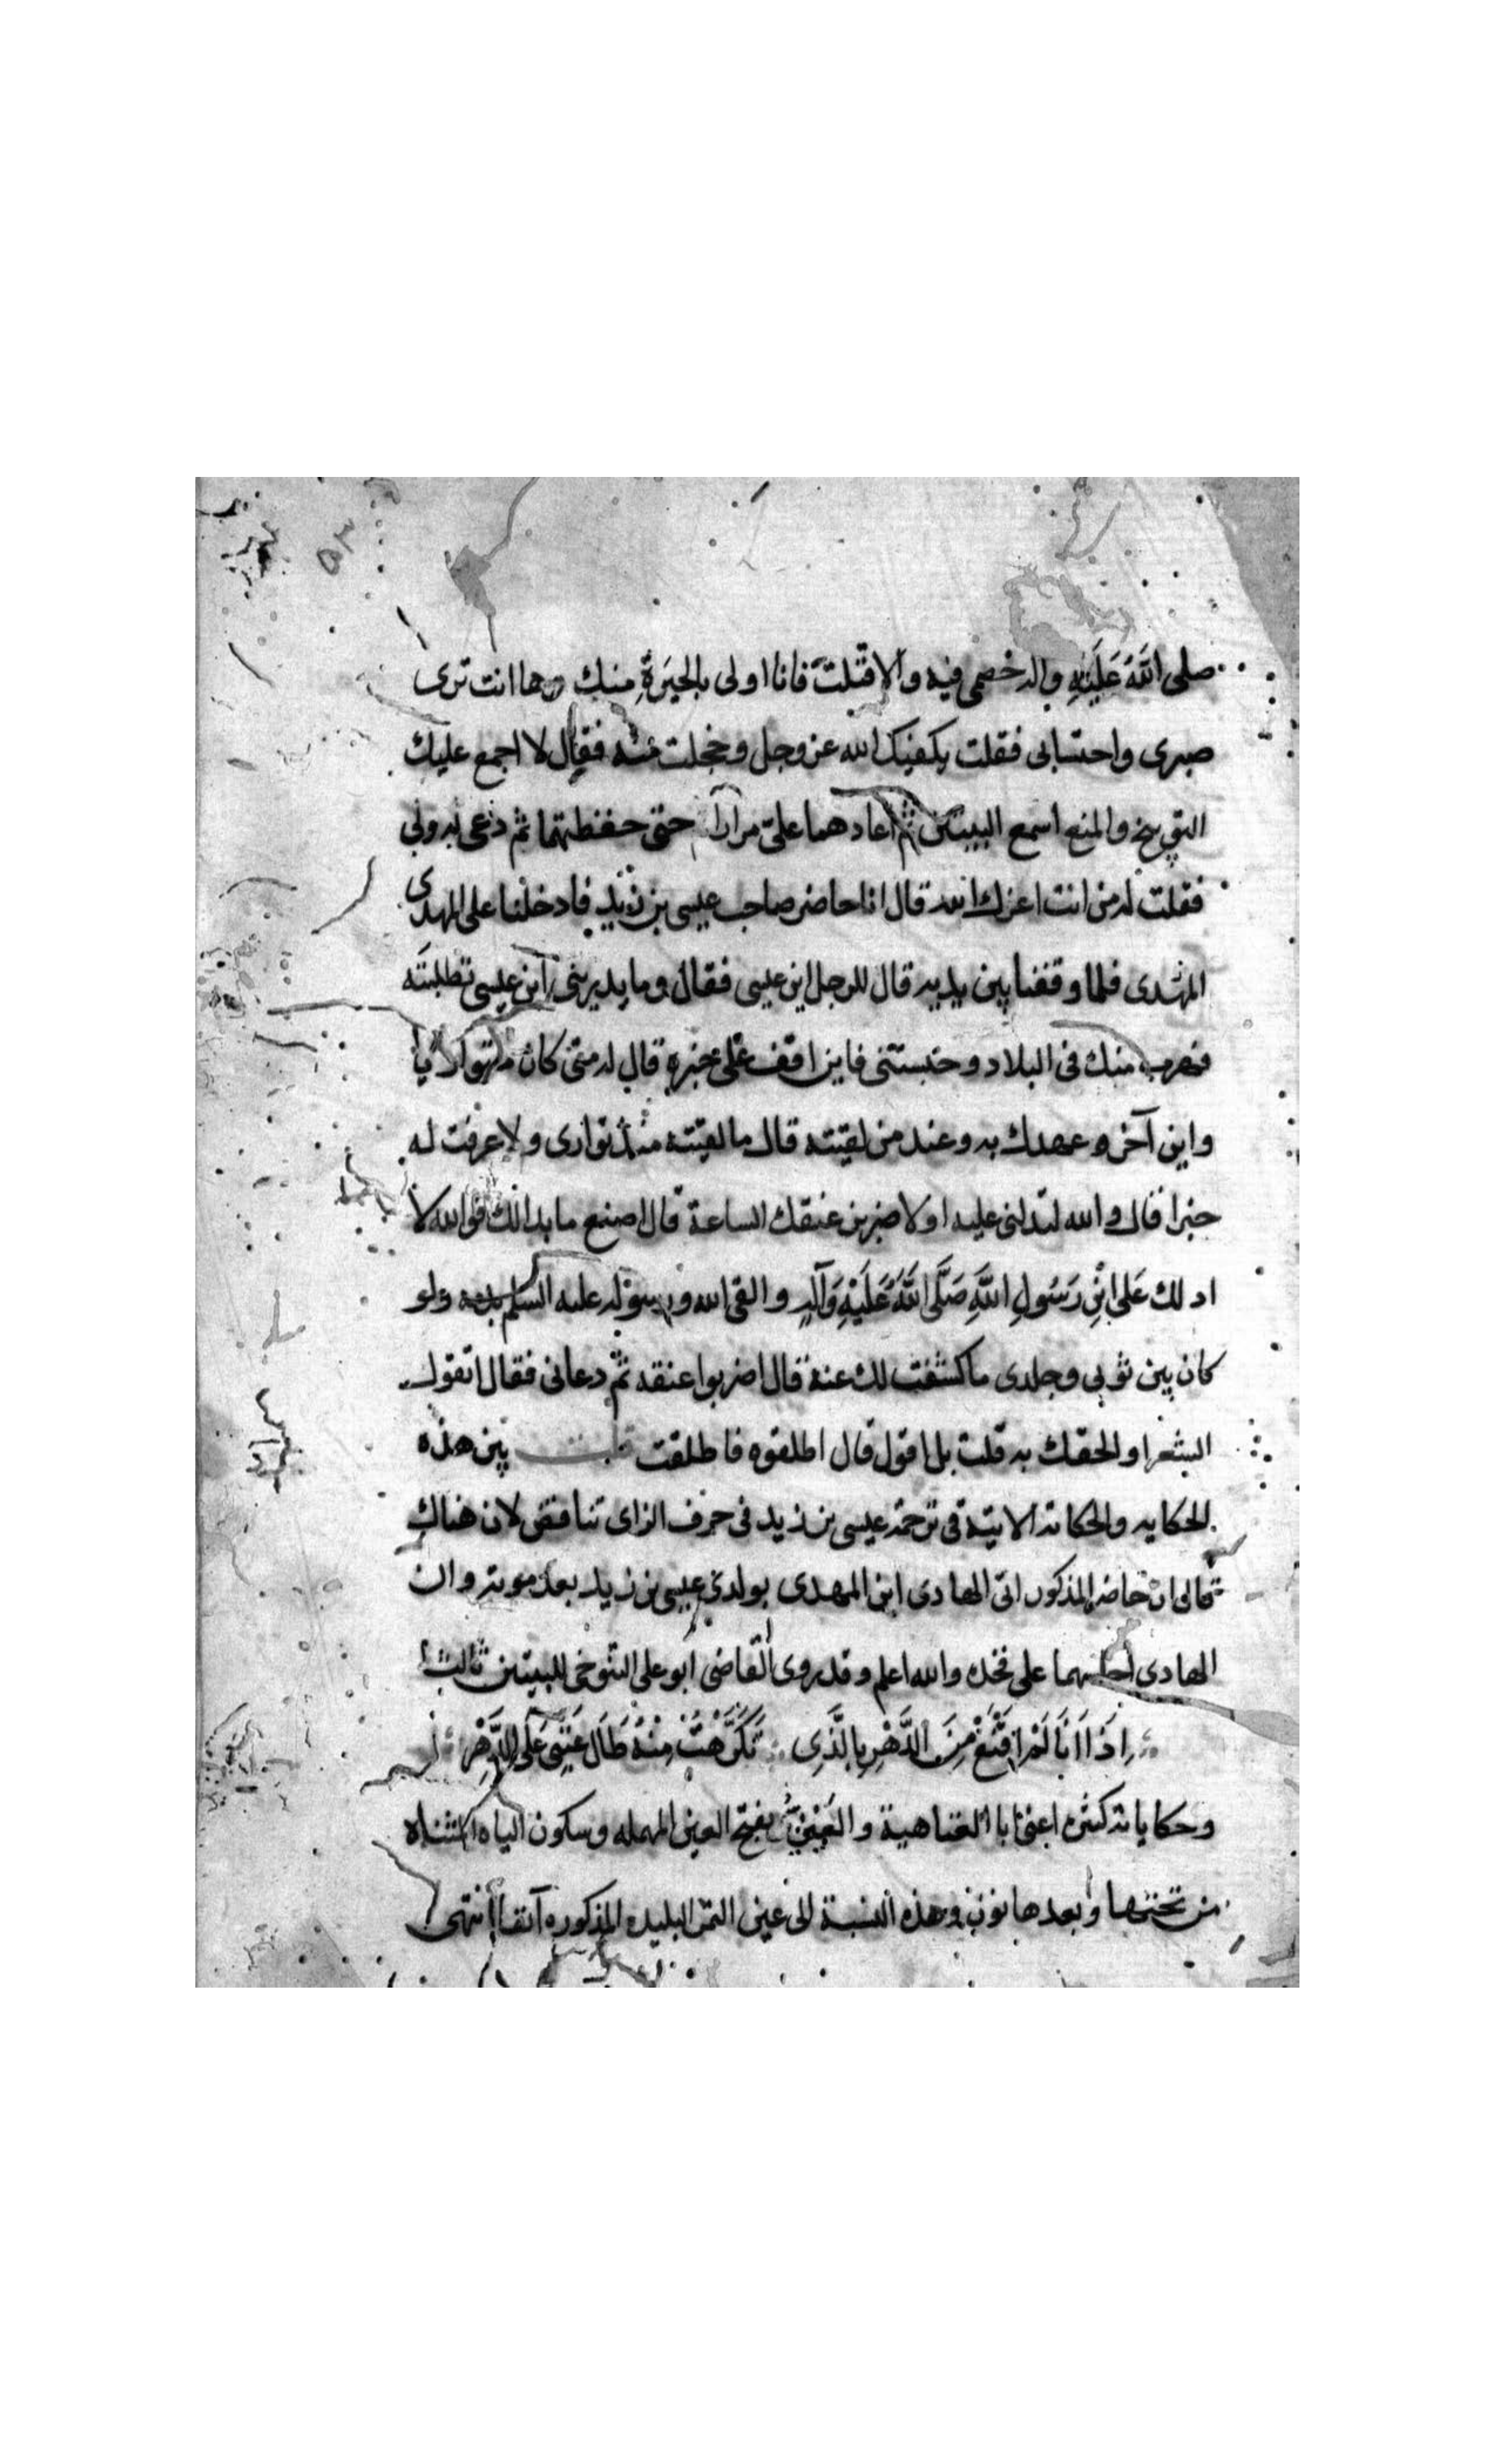 ٥٣
صلى اللهُ عَلَيْهِ واله خصمى فيه والا قتلت فانا اولى بالحيرة منك وها انت ترى
صبرى واحتسابى فقلت يكفيك الله عز وجل وخجلت منه فقال لا اجمع عليك
التوبيخ والمنع اسمع البيتين ثم اعادهما على مرارا حتى حفظتهما ثم دعى به ولى
فقلت له من انت اعزك الله قال انا حاضر صاحب عيسى بن زيد فادخلنا على المهدى
المهدى فلما وقفنا بين يديه قال للرجل اين عيسى فقال وما يدرينى اين عيسى تطلبته
فهرب منك فى البلاد وحبستنى فاين اقف على خبره قال له متى كان متواريا
واين آخر عهدك به وعند من لقيته قال ما لقيته منذ توارى ولا عرفت له
خبرا قال والله لتدلنى عليه او لاضربن عنقك الساعة قال اصنع ما بدا لك فوالله لا
ادلك عَلى ابْنِ رَسُولِ اللَّهِ صَلَّى اللَّهُ عَلَيْهِ وَآلِهِ والقى الله ورسوله عليه السلم بدمه ولو
كان بين ثوبى وجلدى ما كشفت لك عنه قال اضربوا عنقه ثم دعانى فقال اتقول
الشعر او الحقك به قلت بل اقول قال اطلقوه فاطلقت قلت بين هذه
الحكايه والحكاية الاتية فى ترجمة عيسى بن زيد فى حرف الزاى تنافقى لان هناك
ان حاضر المذكور اتى الهادى ابن المهدى بولدى عيسى بن زيد بعد موته وان
الهادى اجلسهما على فخذه والله اعلم وقد روى القاضى ابو على التنوخى للبيتين ثالثا
اِذَا اَنَا لَمْ اَقْنَعْ مِنَ الدَّهْرِ بِالَّذِى تَكَرَّهْتُ مِنْهُ طَالَ عَتْبِى عَلَى الدَّهْرِ
وحكاياته كثيره اعنى ابا العتاهية والعَيْنِىّ بفتح العين المهمله وسكون الياء المثناه
من تحتها وبعدها نون وهذه النسبة الى عين التمر البليده المذكوره آنفا انتهى